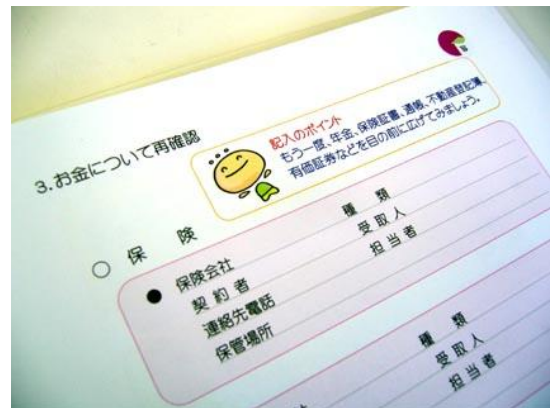 3.お金について再確認
記入のポイント
もう一度、年金、保険証書、通帳、不動産登記簿、
有価証券などを目の前に広げてみましょう。
○ 保 険
● 保険会社 種 類
契 約 者 受 取 人
連絡先電話 担 当 者
保管場所
種 類
受 取 人
担 当 者